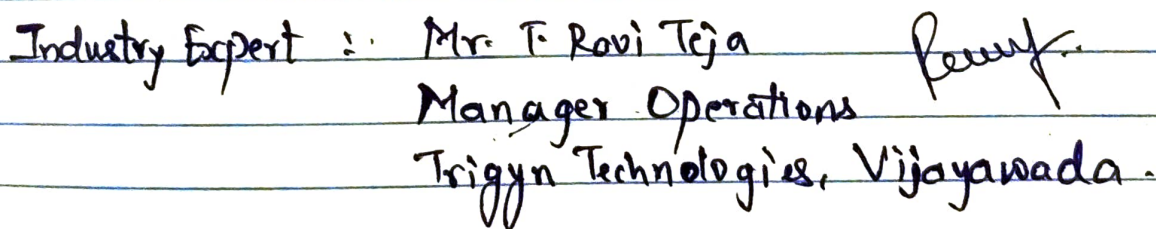 Industry Expert :. Mr. T. Ravi Teja
Manager Operations
Trigyn Technologies, Vijayawada.